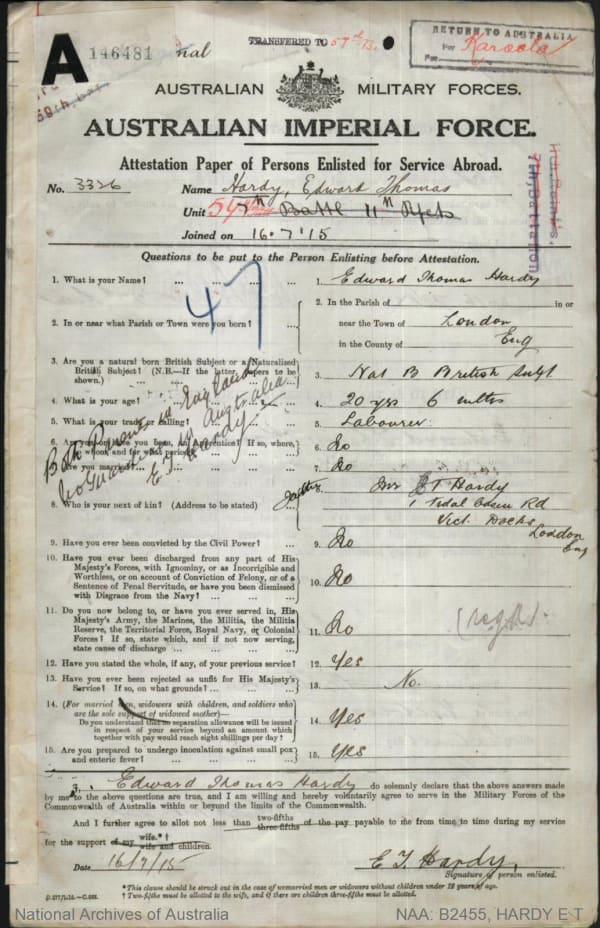 A 146481
TRANSFERRED TO 59th B.
RETURN TO AUSTRALIA
Per Karoola
AUSTRALIAN MILITARY FORCES.
AUSTRALIAN IMPERIAL FORCE.
Attestation Paper of Persons Enlisted for Service Abroad.
No. 3326 Name Hardy, Edward Thomas
Unit 59th 7th Battl 11th Rfts
Joined on 16.7.15
Questions to be put to the Person Enlisting before Attestation.
1. What is your Name? ... ... ... ... 1. Edward Thomas Hardy
2. In or near what Parish or Town were you born? ... 2. In the Parish of in or
near the Town of London
in the County of Eng
47
3. Are you a natural born British Subject or a Naturalized
British Subject? (N.B.—If the latter, papers to be
shown.) ... ... ... 3. Nat B British Subj.
4. What is your age? ... 4. 20 yrs 6 mths
5. What is your trade or calling? ... 5. Labourer
6. Are you, or have you been, an Apprentice? If so, where,
to whom, and for what period? 6. No
7. Are you married? 7. No
Both Parents in England
No Guardian in Australia
E T Hardy
8. Who is your next of kin? (Address to be stated) father 8. T Hardy
1 Tidal Basin Rd
Vict. Docks
London
Eng
9. Have you ever been convicted by the Civil Power? ... 9. No
10. Have you ever been discharged from any part of His
Majesty's Forces, with Ignominy, or as Incorrigible and
Worthless, or on account of Conviction of Felony, or of a
Sentence of Penal Servitude, or have you been dismissed
with Disgrace from the Navy? ... ... ... 10. No
11. Do you now belong to, or have you ever served in, His
Majesty's Army, the Marines, the Militia, the Militia
Reserve, the Territorial Force, Royal Navy, or Colonial
Forces? If so, state which, and if not now serving,
state cause of discharge ... ... ... 11. No
12. Have you stated the whole, if any, of your previous service? 12. Yes
13. Have you ever been rejected as unfit for His Majesty's
Service? If so, on what grounds? ... ... ... 13. No.
14. (For married men, widowers with children, and soldiers who
are the sole support of widowed mother)—
Do you understand that no separation allowance will be issued
in respect of your service beyond an amount which
together with pay would reach eight shillings per day? 14. Yes
15. Are you prepared to undergo inoculation against small pox
and enteric fever? ... ... ... 15. Yes
I, Edward Thomas Hardy do solemnly declare that the above answers made
by me to the above questions are true, and I am willing and hereby voluntarily agree to serve in the Military Forces of the
Commonwealth of Australia within or beyond the limits of the Commonwealth.
And I further agree to allot not less than two-fifths three-fifths of the pay payable to me from time to time during my service
for the support of my wife.*† wife and children.
Date 16/7/15
E T Hardy.
Signature of person enlisted.
*This clause should be struck out in the case of unmarried men or widowers without children under 18 years of age.
† Two-fifths must be allotted to the wife, and if there are children three-fifths must be allotted.
National Archives of Australia
NAA: B2455, HARDY E T